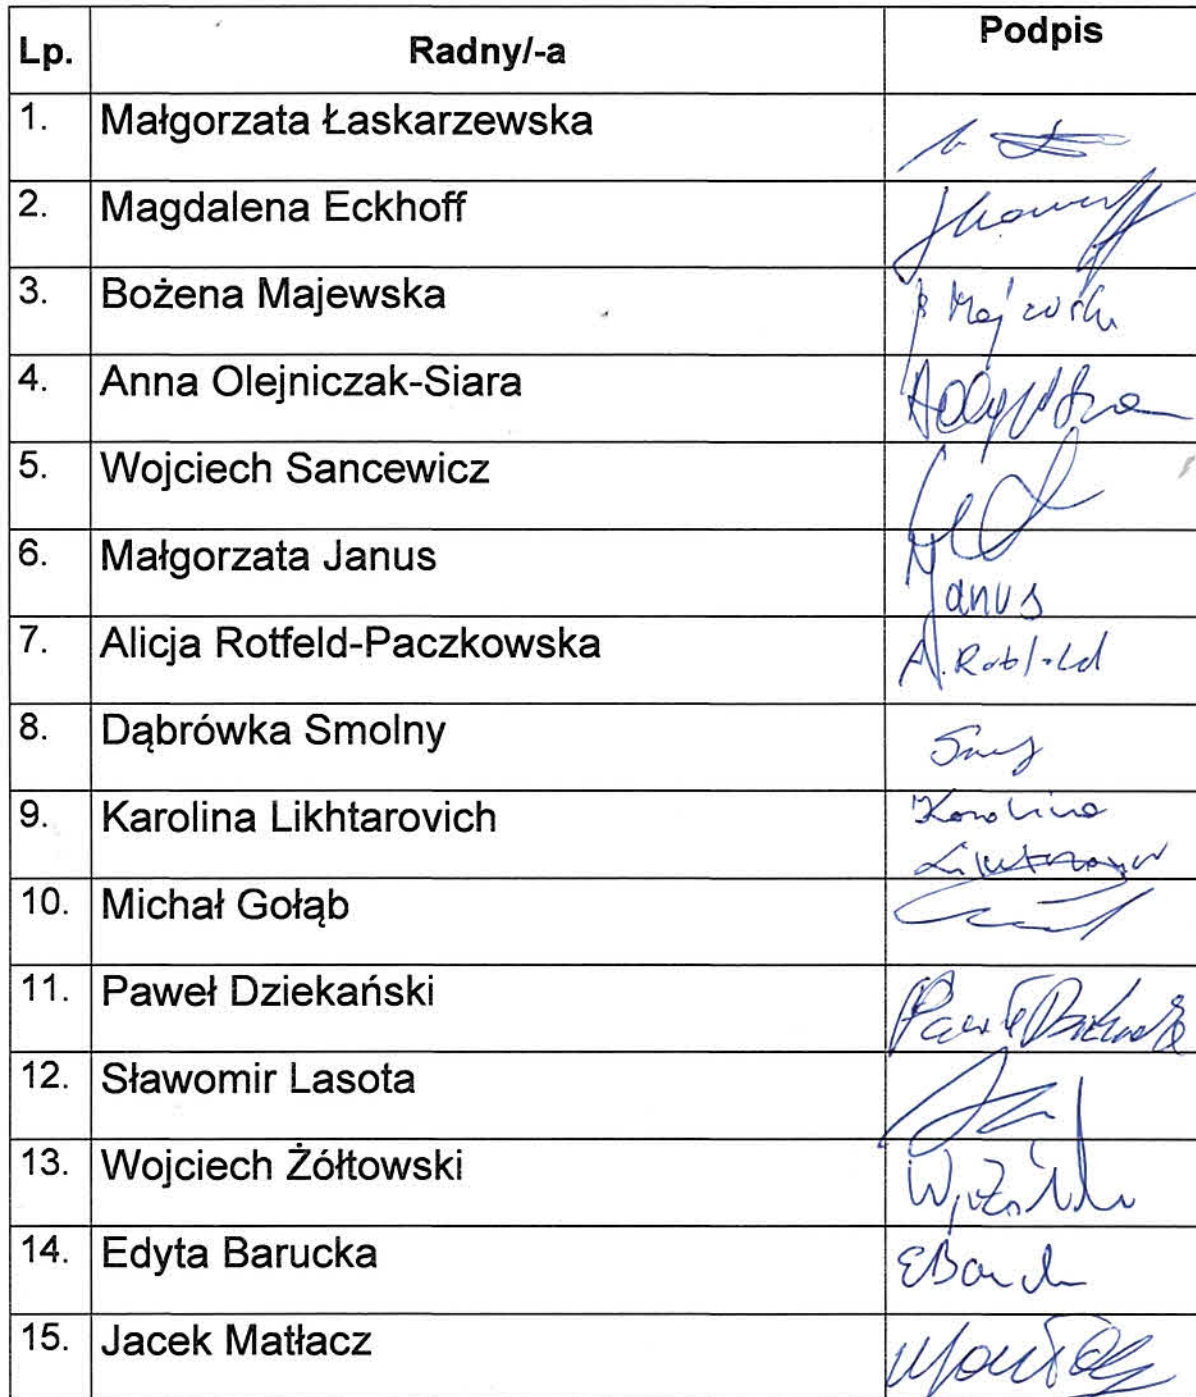 Lp. Radny/-a Podpis
1. Małgorzata Łaskarzewska
2. Magdalena Eckhoff
3. Bożena Majewska B Majewska
4. Anna Olejniczak-Siara
5. Wojciech Sancewicz
6. Małgorzata Janus Janus
7. Alicja Rotfeld-Paczkowska A. Rotfeld
8. Dąbrówka Smolny
9. Karolina Likhtarovich Karolina
10. Michał Gołąb
11. Paweł Dziekański Paweł
12. Sławomir Lasota
13. Wojciech Żółtowski
14. Edyta Barucka
15. Jacek Matłacz